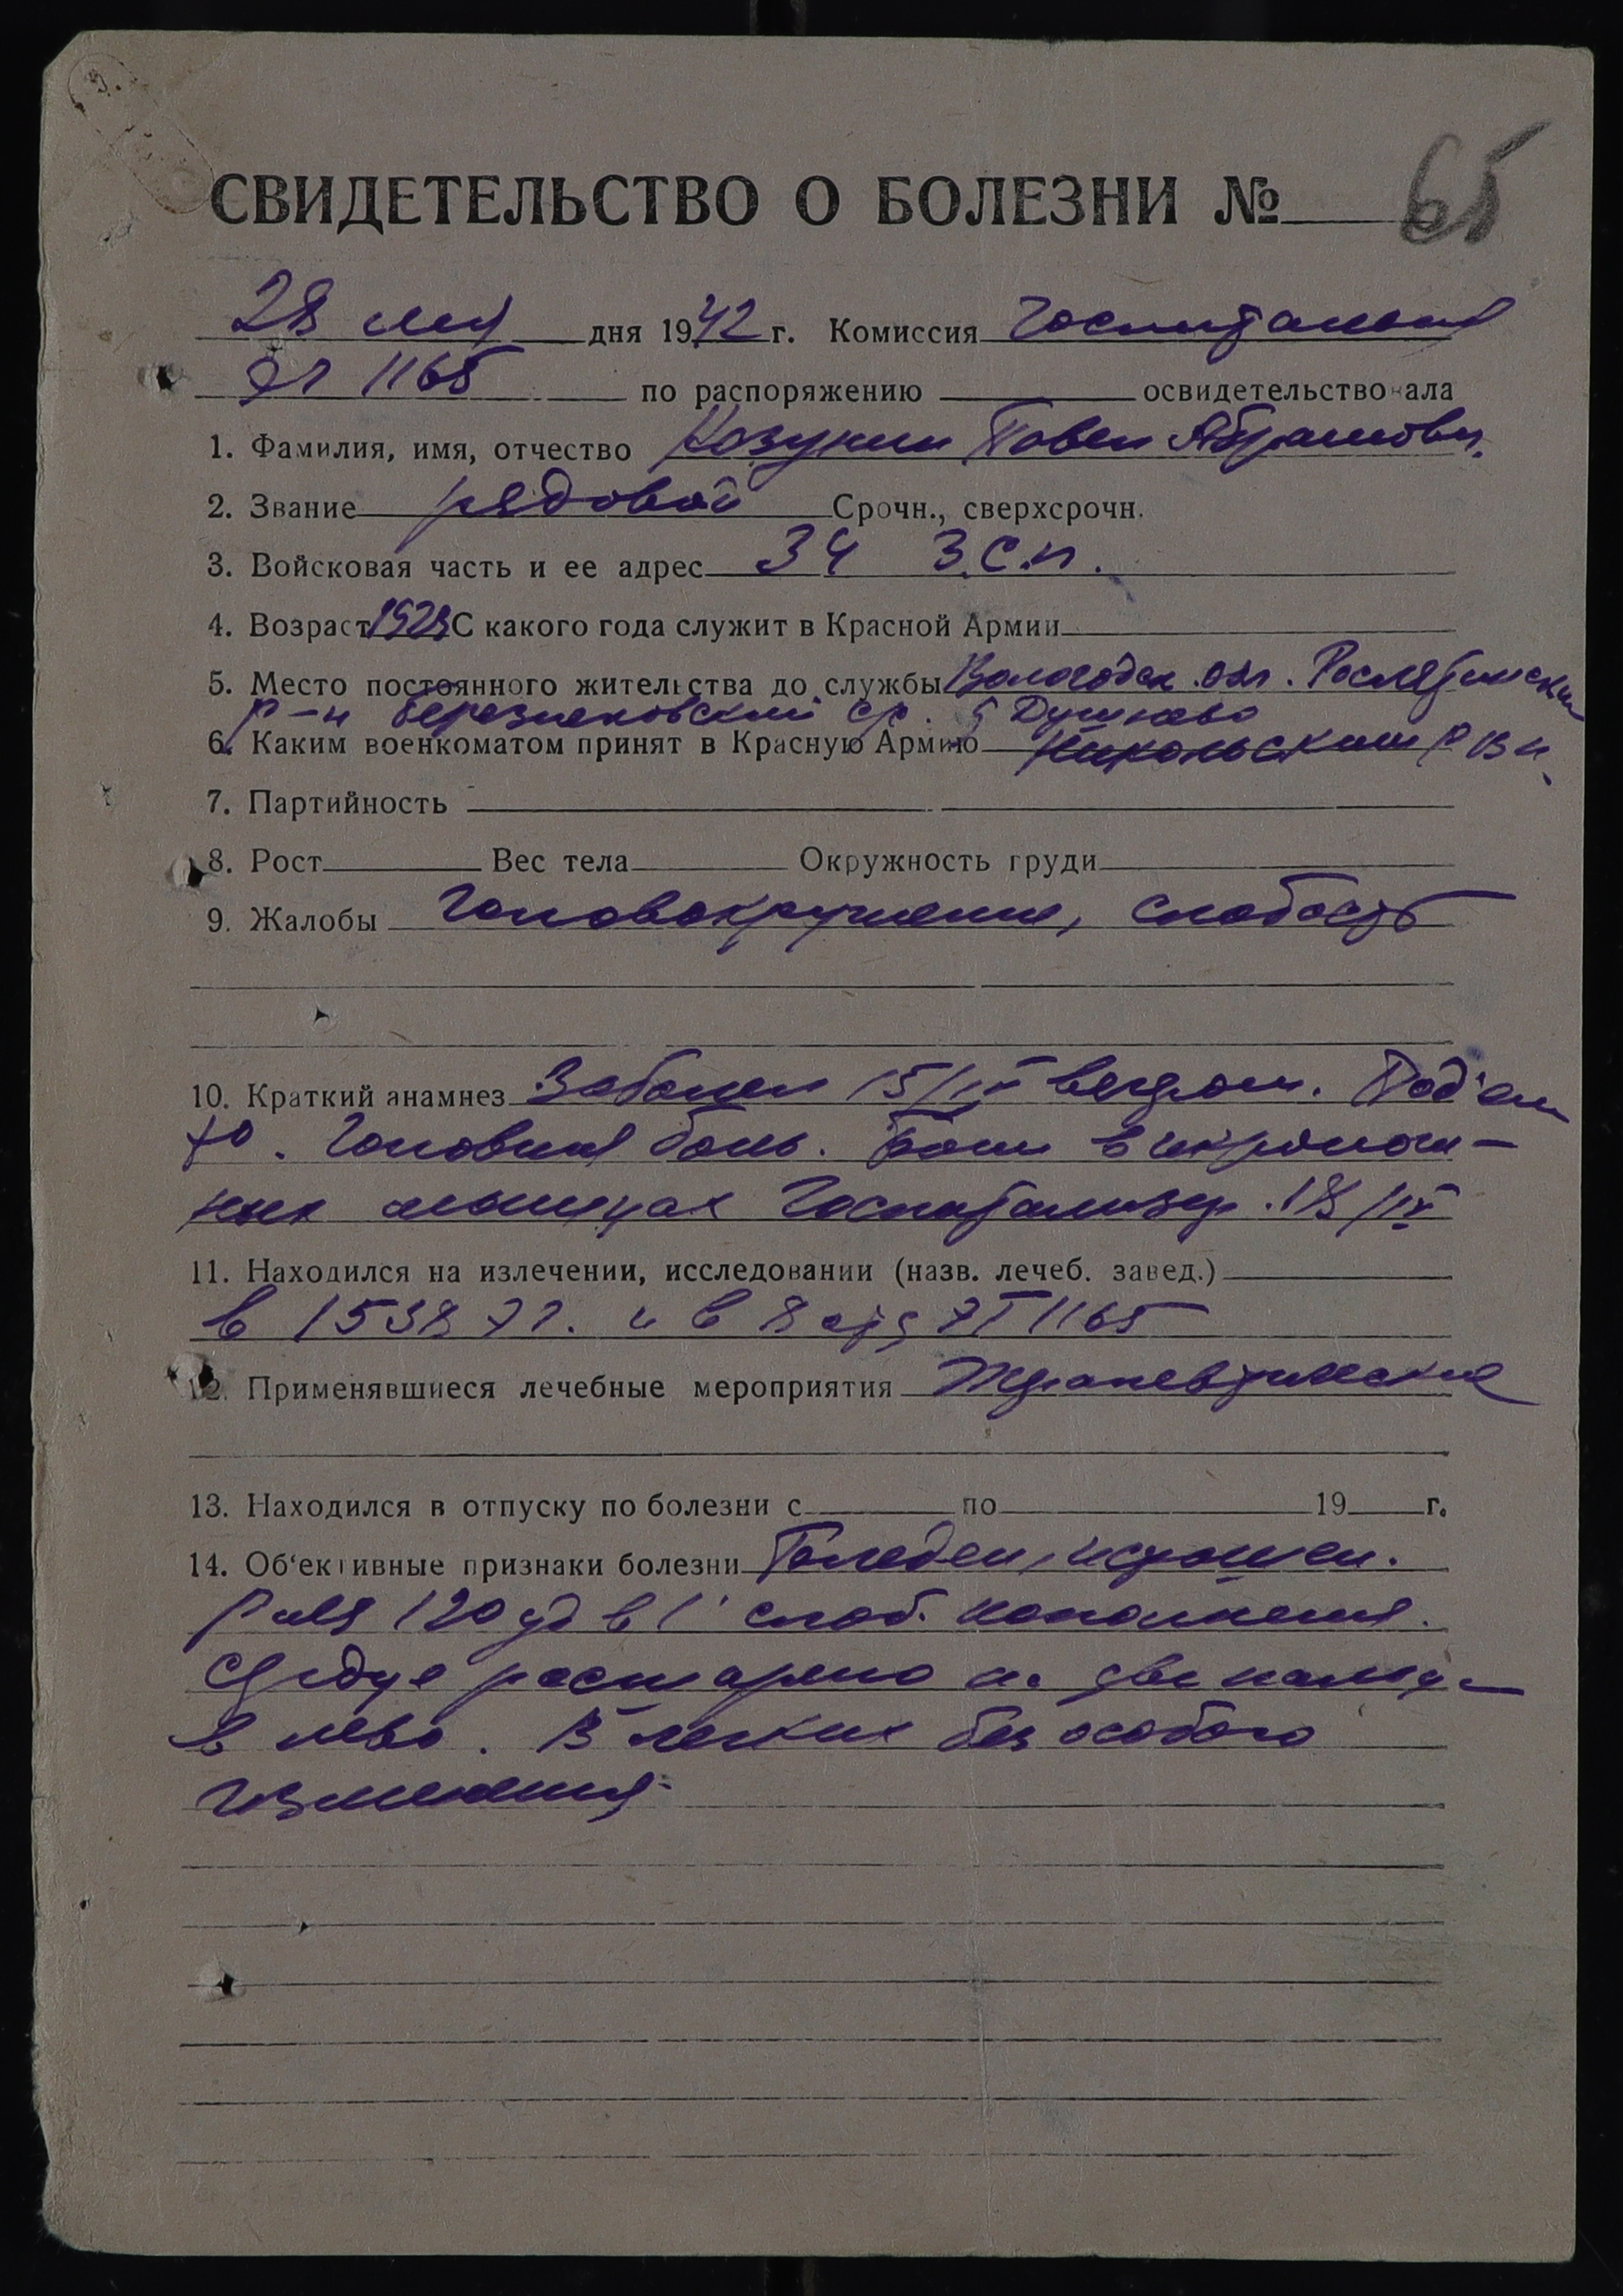 СВИДЕТЕЛЬСТВО О БОЛЕЗНИ № 65
28 мая дня 1942 г. Комиссия Госпитальная
ЭГ 1165 по распоряжению освидетельствовала
1. Фамилия, имя, отчество Козунин Павел Абрамович.
2. Звание рядовой Срочн., сверхсрочн.
3. Войсковая часть и ее адрес 34 З.С.П.
4. Возраст 1923 С какого года служит в Красной Армии
5. Место постоянного жительства до службы Вологодск. обл. Рослятинский
р-н Березниковский с/с. Душнево
6. Каким военкоматом принят в Красную Армию Никольским РВК
7. Партийность
8. Рост Вес тела Окружность груди
9. Жалобы Головокружение, слабость
10. Краткий анамнез Заболел 15/IV вечером. Под'ем
t°. Головная боль. Боли в икронож-
ных мышцах Госпитализир. 18/IV
11. Находился на излечении, исследовании (назв. лечеб. завед.)
в 1538 ЭГ. и в 8 ЭГ 1165
12. Применявшиеся лечебные мероприятия Терапевтические
13. Находился в отпуску по болезни с по 19 г.
14. Об'ективные признаки болезни Бледен, истощен.
Puls 120 уд в 1' слаб. наполнения.
Сердце расширено на два пальца
в лево. В легких без особого
изменения